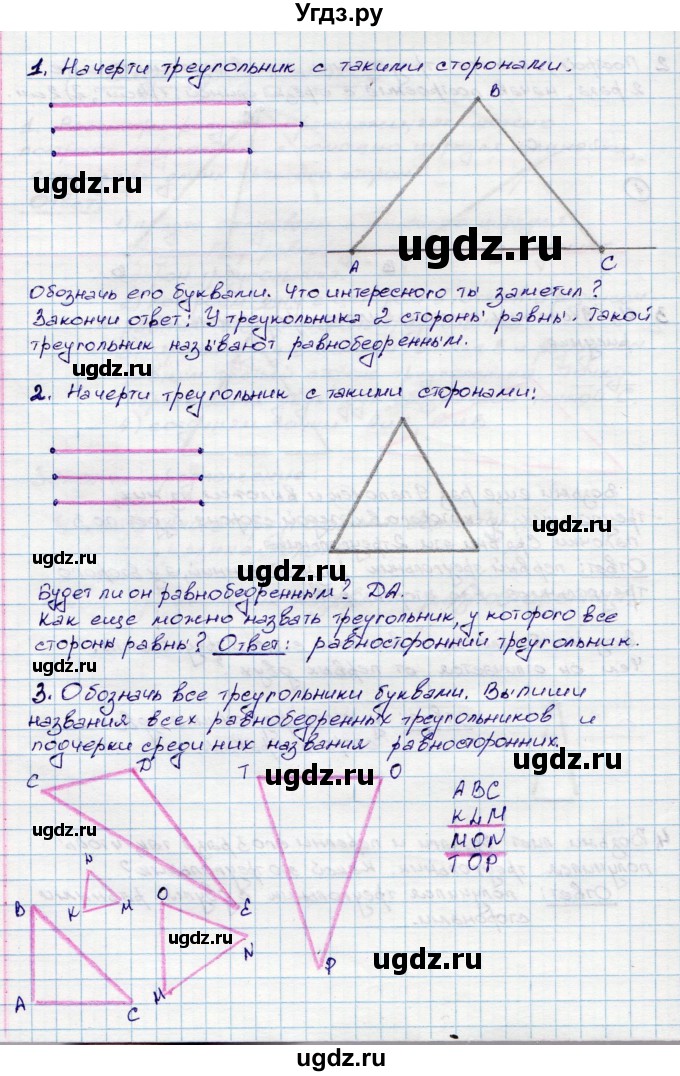 Угдз.ру
1. Начерти треугольник с такими сторонами.
B
ugdz.ru
ugdz.ru
A
C
Обозначь его буквами. Что интересного ты заметил?
Закончи ответ: У треукольника 2 стороны равны. Такой
треугольник называют равнобедренным.
ugdz.ru
2. Начерти треугольник с такими сторонами:
ugdz.ru
ugdz.ru
Будет ли он равнобедренным? DA.
Как еще можно назвать треугольник, у которого все
стороны равны? Ответ: равносторонний треугольник.
ugdz.ru
3. Обозначь все треугольники буквами. Выпиши
названия всех равнобедренных треугольников и
подчерки среди них названия равносторонних.
ugdz.ru
C
D
T
ugdz.ru
O
ABC
KLM
MON
TOP
ugdz.ru
K
M
B
O
E
ugdz.ru
N
P
ugdz.ru
A
C
M
ugdz.ru